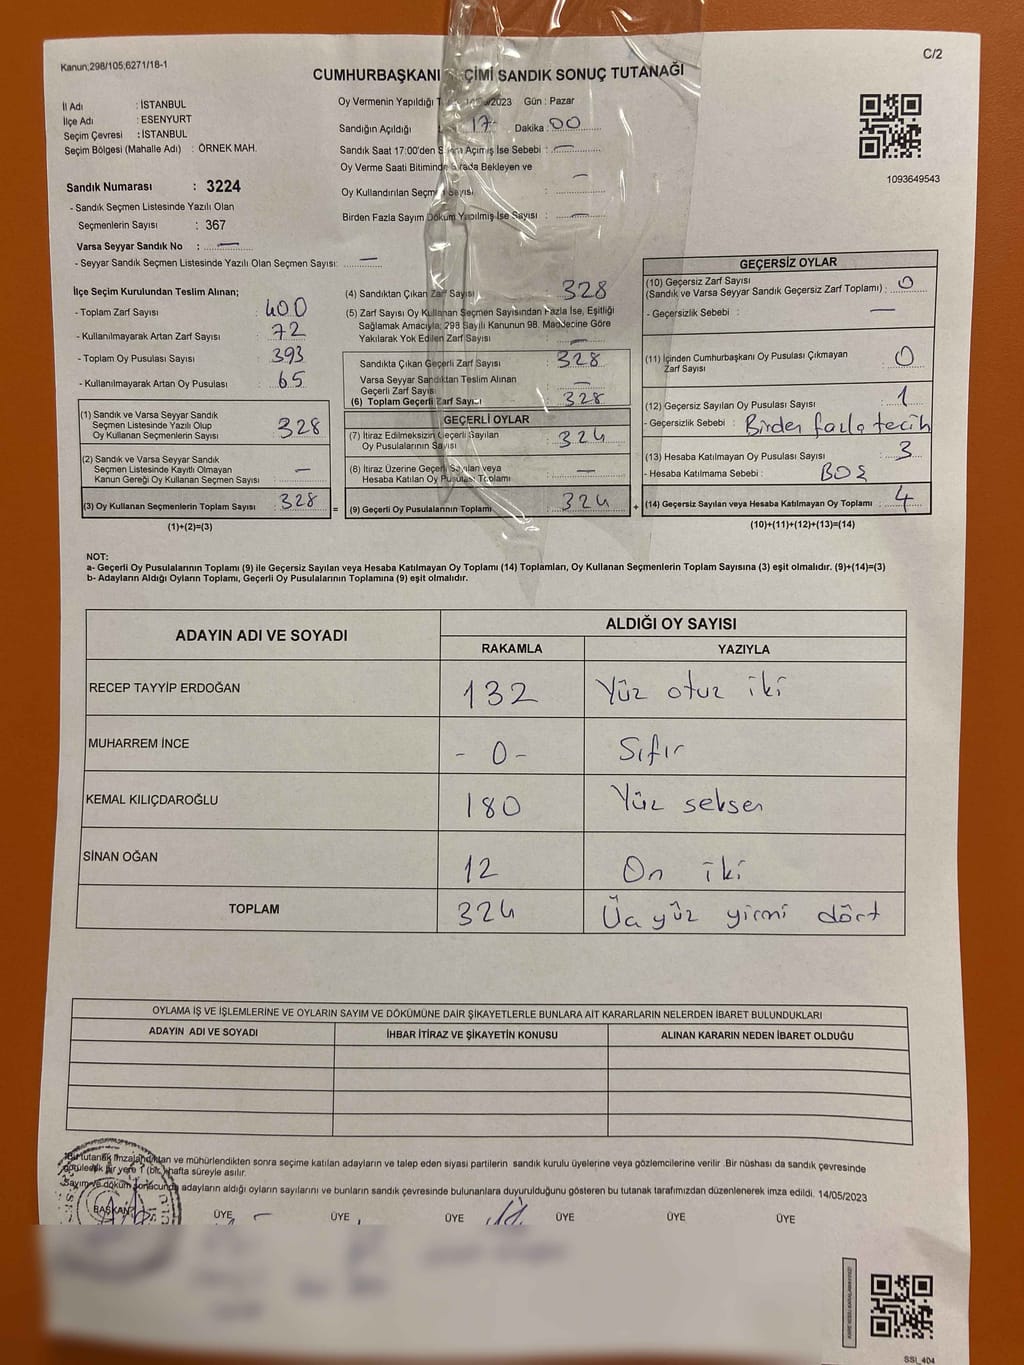 Kanun;298/105;6271/18-1
C/2
CUMHURBAŞKANI SEÇİMİ SANDIK SONUÇ TUTANAĞI
İl Adı : İSTANBUL
İlçe Adı : ESENYURT
Seçim Çevresi : İSTANBUL
Seçim Bölgesi (Mahalle Adı) : ÖRNEK MAH.
Sandık Numarası : 3224
- Sandık Seçmen Listesinde Yazılı Olan
Seçmenlerin Sayısı : 367
Varsa Seyyar Sandık No : —
- Seyyar Sandık Seçmen Listesinde Yazılı Olan Seçmen Sayısı: —
Oy Vermenin Yapıldığı /2023 Gün : Pazar
Sandığın Açıldığı 17 Dakika : 00
Sandık Saat 17:00'den Açımış İse Sebebi : —
Oy Verme Saati Bitiminde Sırada Bekleyen ve
Oy Kullandırılan Seçmen Sayısı : —
Birden Fazla Sayım Döküm Yapılmış İse Sayısı : —
1093649543
İlçe Seçim Kurulundan Teslim Alınan;
- Toplam Zarf Sayısı : 400
- Kullanılmayarak Artan Zarf Sayısı : 72
- Toplam Oy Pusulası Sayısı : 393
- Kullanılmayarak Artan Oy Pusulası : 65
(1) Sandık ve Varsa Seyyar Sandık
Seçmen Listesinde Yazılı Olup
Oy Kullanan Seçmenlerin Sayısı : 328
(2) Sandık ve Varsa Seyyar Sandık
Seçmen Listesinde Kayıtlı Olmayan
Kanun Gereği Oy Kullanan Seçmen Sayısı : —
(3) Oy Kullanan Seçmenlerin Toplam Sayısı : 328 =
(1)+(2)=(3)
(4) Sandıktan Çıkan Zarf Sayısı : 328
(5) Zarf Sayısı Oy Kullanan Seçmen Sayısından Fazla İse, Eşitliği
Sağlamak Amacıyla; 298 Sayılı Kanunun 98. Maddecine Göre
Yakılarak Yok Edilen Zarf Sayısı : —
Sandıkta Çıkan Geçerli Zarf Sayısı : 328
Varsa Seyyar Sandıktan Teslim Alınan
Geçerli Zarf Sayısı : —
(6) Toplam Geçerli Zarf Sayısı : 328
GEÇERLİ OYLAR
(7) İtiraz Edilmeksizin Geçerli Sayılan
Oy Pusulalarının Sayısı : 324
(8) İtiraz Üzerine Geçerli Sayılan veya
Hesaba Katılan Oy Pusulası Toplamı : —
(9) Geçerli Oy Pusulalarının Toplamı : 324 +
GEÇERSİZ OYLAR
(10) Geçersiz Zarf Sayısı
(Sandık ve Varsa Seyyar Sandık Geçersiz Zarf Toplamı) : 0
- Geçersizlik Sebebi : —
(11) İçinden Cumhurbaşkanı Oy Pusulası Çıkmayan
Zarf Sayısı : 0
(12) Geçersiz Sayılan Oy Pusulası Sayısı : 1
- Geçersizlik Sebebi : Birden fazla tecih
(13) Hesaba Katılmayan Oy Pusulası Sayısı : 3
- Hesaba Katılmama Sebebi : BOŞ
(14) Geçersiz Sayılan veya Hesaba Katılmayan Oy Toplamı : 4
(10)+(11)+(12)+(13)=(14)
NOT:
a- Geçerli Oy Pusulalarının Toplamı (9) ile Geçersiz Sayılan veya Hesaba Katılmayan Oy Toplamı (14) Toplamları, Oy Kullanan Seçmenlerin Toplam Sayısına (3) eşit olmalıdır. (9)+(14)=(3)
b- Adayların Aldığı Oyların Toplamı, Geçerli Oy Pusulalarının Toplamına (9) eşit olmalıdır.
ADAYIN ADI VE SOYADI
ALDIĞI OY SAYISI
RAKAMLA YAZIYLA
RECEP TAYYİP ERDOĞAN 132 Yüz otuz iki
MUHARREM İNCE - 0 - Sıfır
KEMAL KILIÇDAROĞLU 180 Yüz seksen
SİNAN OĞAN 12 On iki
TOPLAM 324 Üç yüz yirmi dört
OYLAMA İŞ VE İŞLEMLERİNE VE OYLARIN SAYIM VE DÖKÜMÜNE DAİR ŞİKAYETLERLE BUNLARA AİT KARARLARIN NELERDEN İBARET BULUNDUKLARI
ADAYIN ADI VE SOYADI İHBAR İTİRAZ VE ŞİKAYETİN KONUSU ALINAN KARARIN NEDEN İBARET OLDUĞU
Bu tutanak imzalandıktan ve mühürlendikten sonra seçime katılan adayların ve talep eden siyasi partilerin sandık kurulu üyelerine veya gözlemcilerine verilir. Bir nüshası da sandık çevresinde
görülecek bir yere 1 (bir) hafta süreyle asılır.
Sayım ve döküm sonucunda adayların aldığı oyların sayılarını ve bunların sandık çevresinde bulunanlara duyurulduğunu gösteren bu tutanak tarafımızdan düzenlenerek imza edildi. 14/05/2023
BAŞKAN ÜYE ÜYE ÜYE ÜYE ÜYE ÜYE
SSİ_404